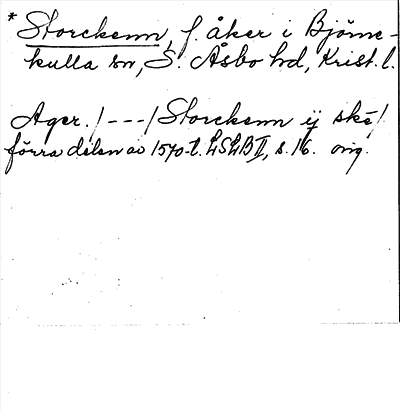 * Storckenn, f. åker i Björne-
kulla sn, S. Åsbo hd, Krist. l.
Ager. /---/ Storckenn ij ske/.
förra delen av 1570-t. LSLB II, s. 16. orig.